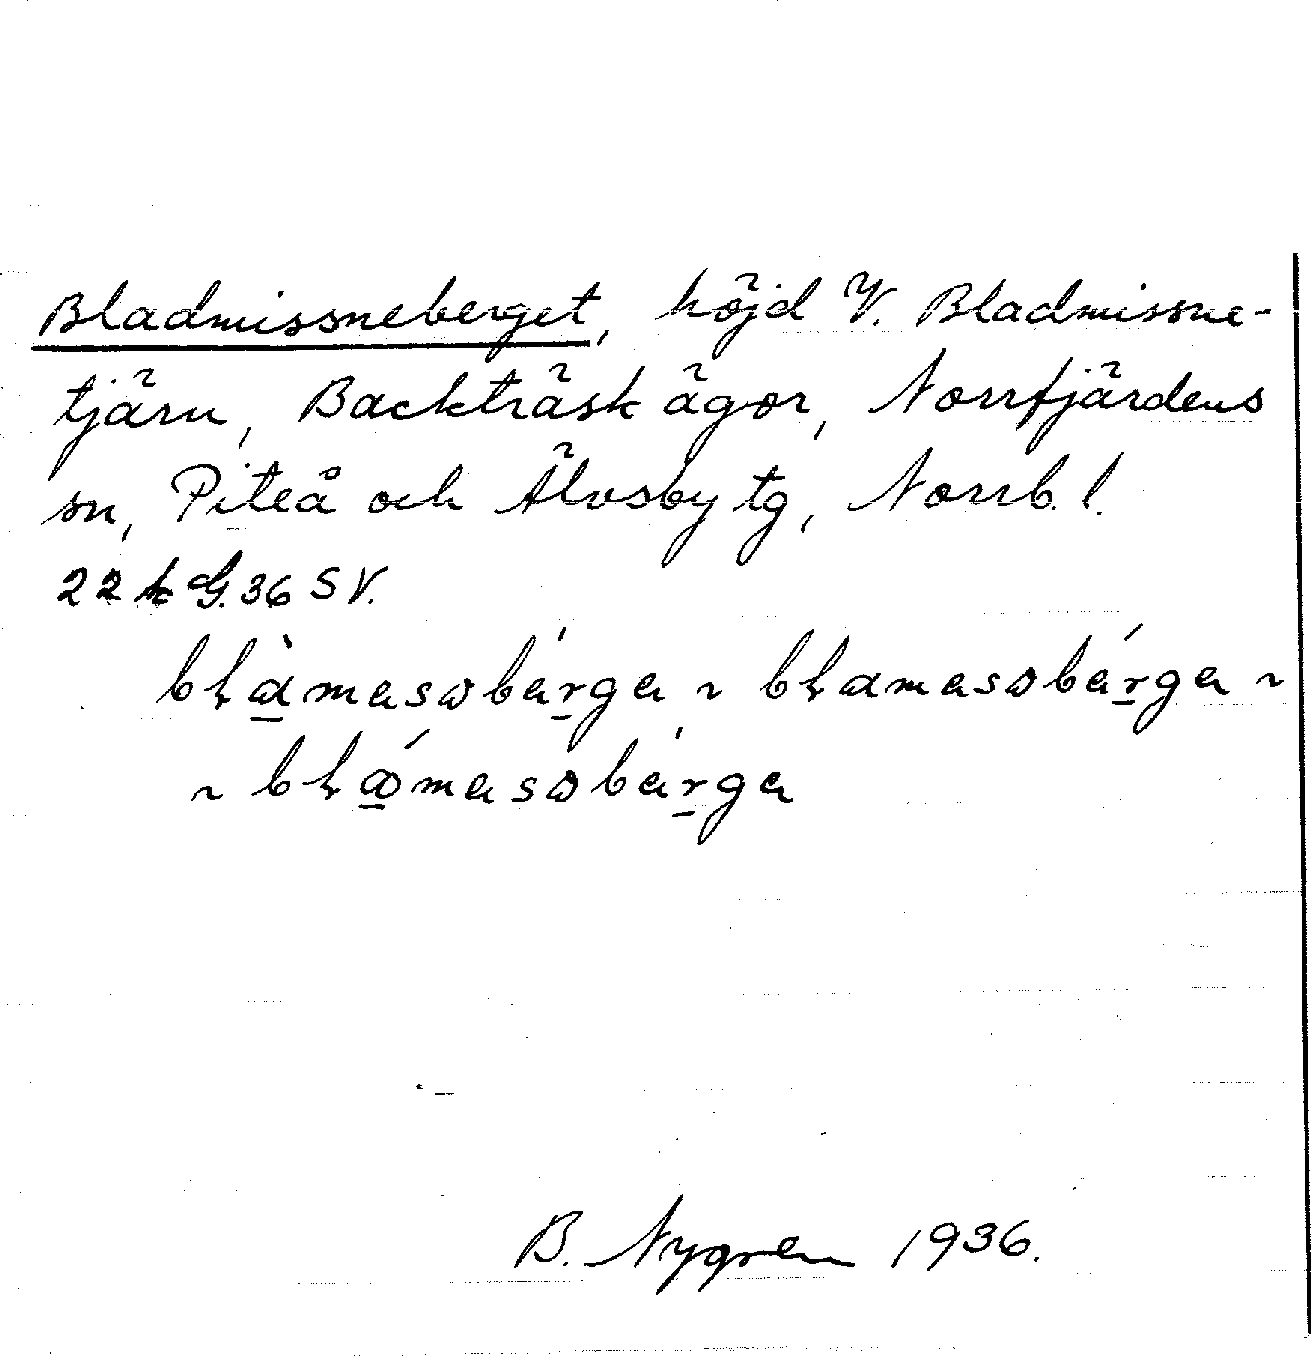 Bladmissneberget, höjd V. Bladmissne-
tjärn, Backträsk ägor, Norrfjärdens
sn, Piteå och Älvsby tg, Norrb. l.
22 k G. 36 SV.
~
~
B. Nygren 1936.